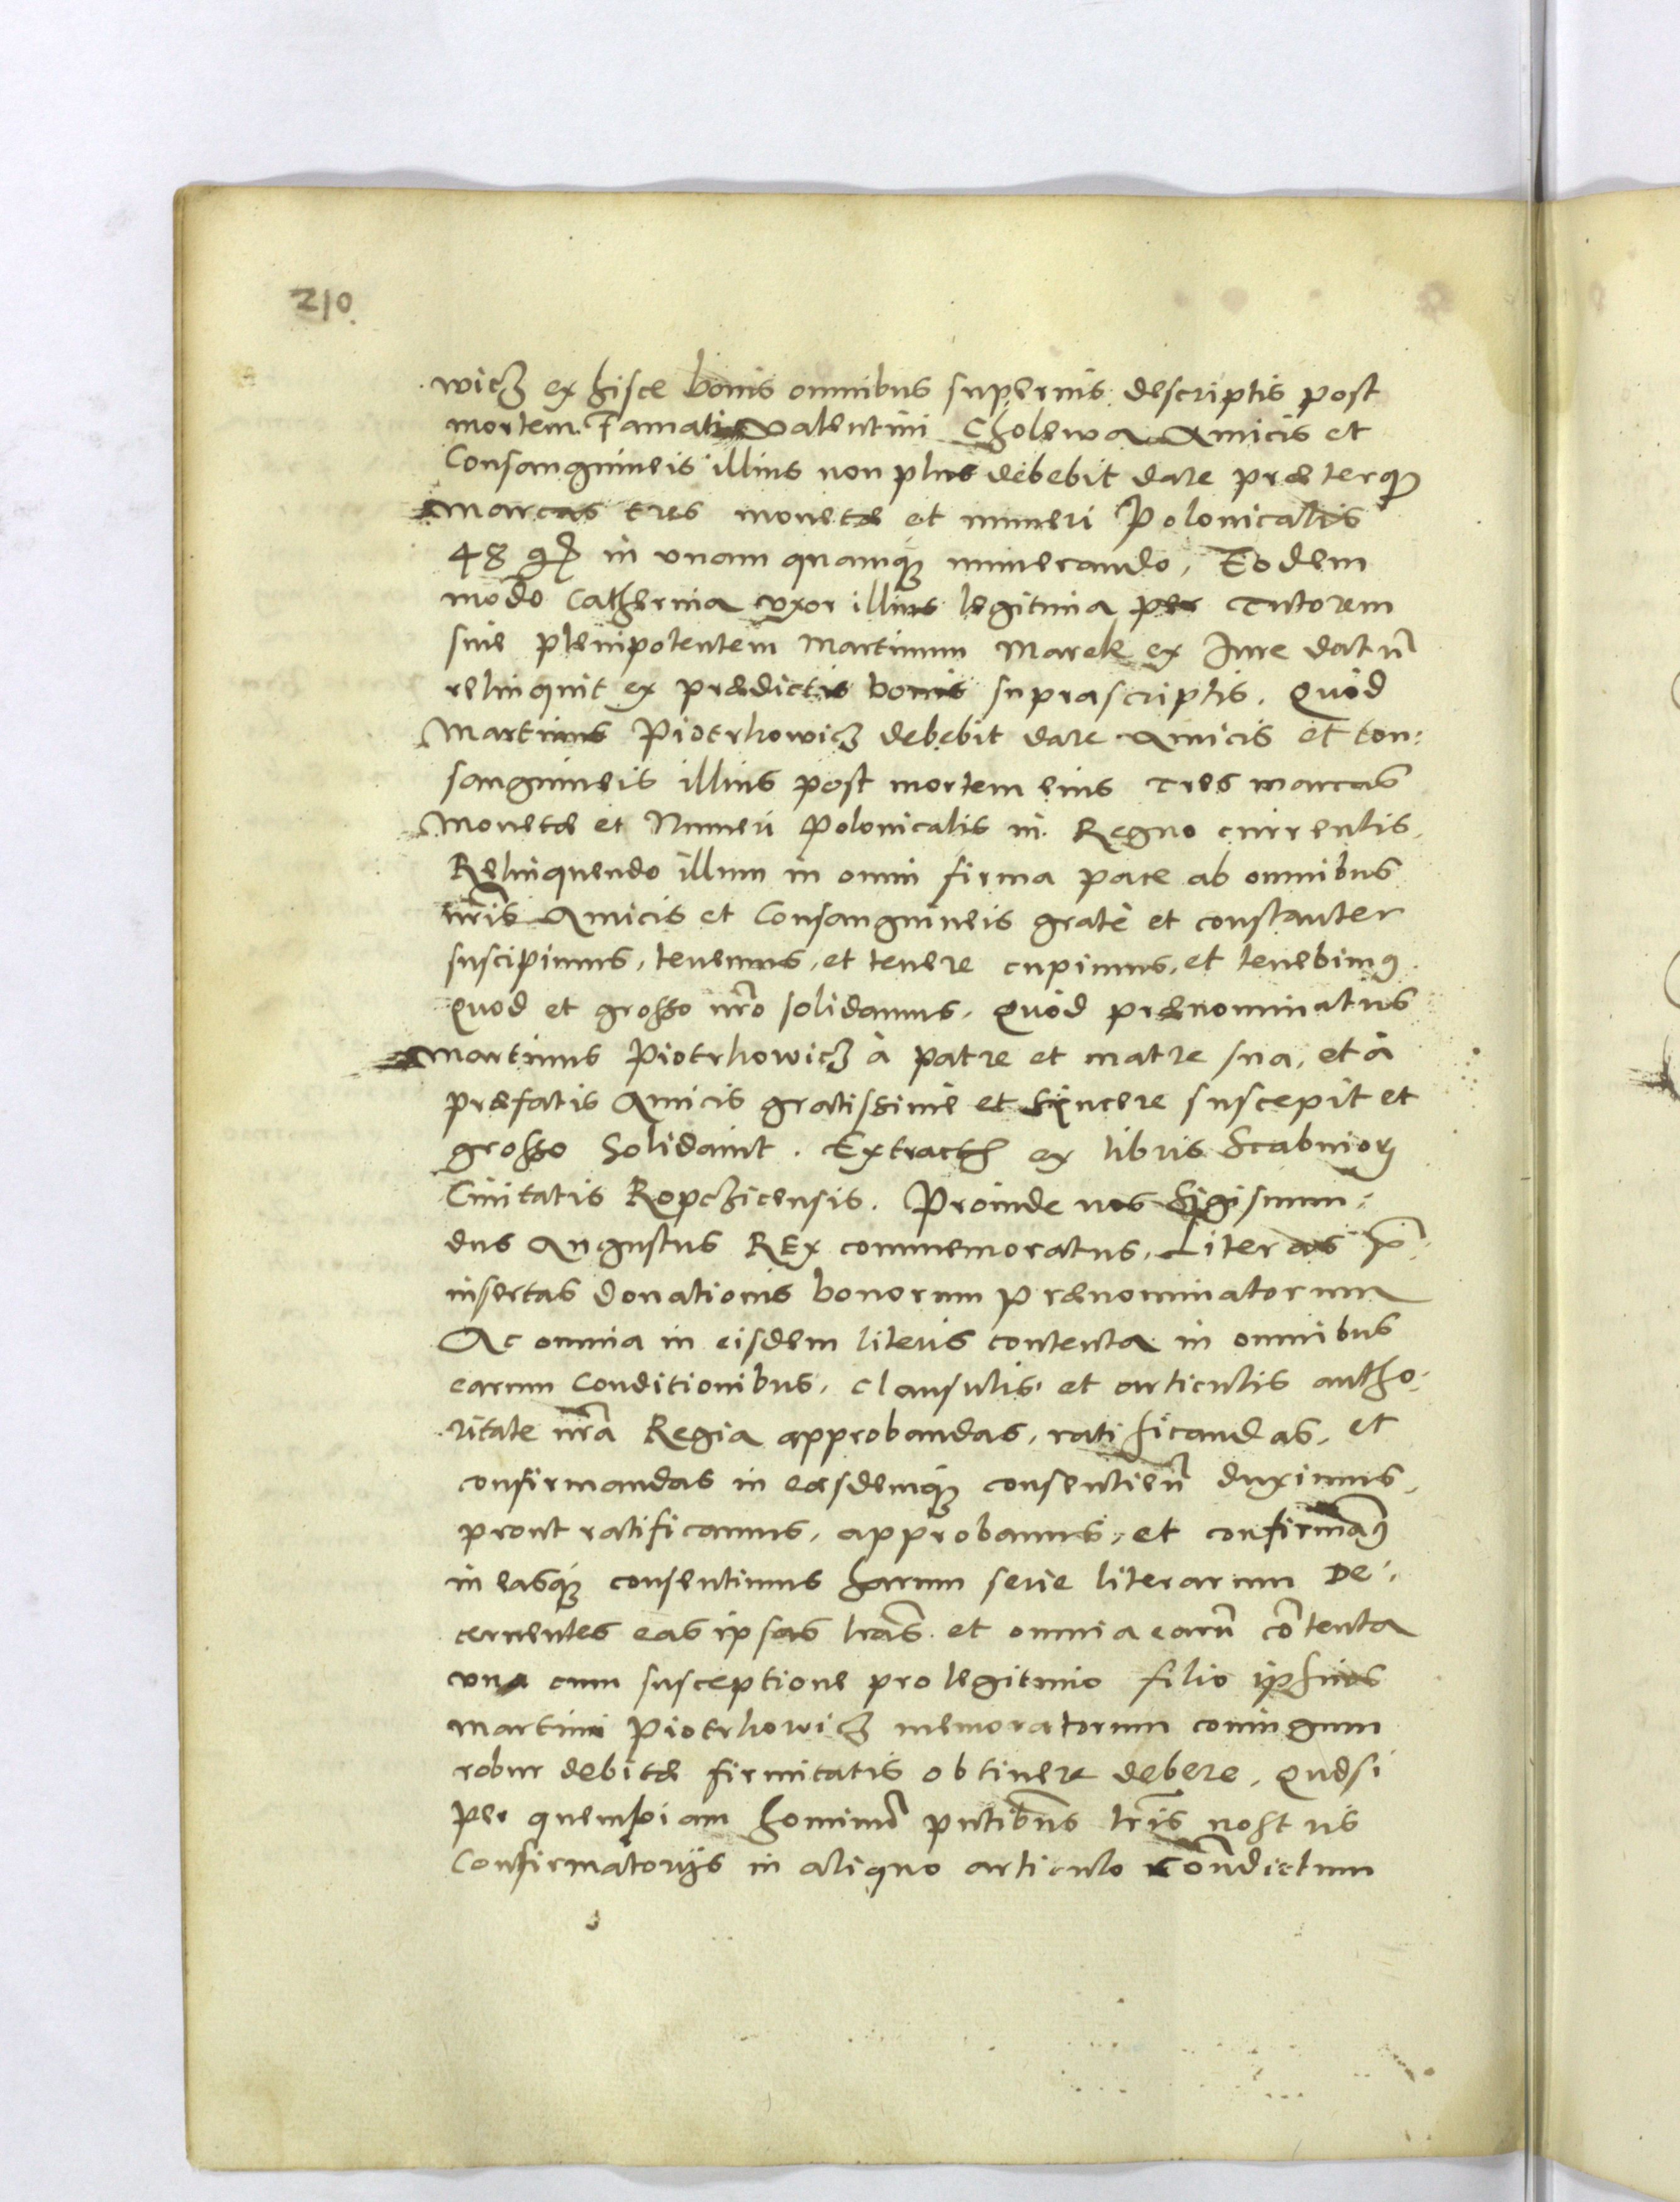 210.
wicz ex hisce bonis omnibus supernis descriptis post
mortem Famati Valentini Cholewa Amicis et
Consanguineis illius non plus debebit dare præterqȝ
Marcas tres monetæ et numeri Polonicalis
48 gr in unam quamqȝ numerando, Eodem
modo Catherina uxor illius legitima per Tutorem
suũ plenipotentem Martinum Marek ex Iure datũ
relinquit ex prædictis bonis suprascriptis. Quòd
Martinus Piotrhowicz debebit dare Amicis et Con:
sanguineis illius post mortem eius Tres marcas
Monetæ et Numeri Polonicalis in Regno currentis.
Relinquendo illum in omni firma pace ab omnibus
nr̃is Amicis et Consanguineis gratè et constanter
suscipimus, tenemus, et tenere cupimus, et tenebimꝰ
Quod et grosso nr̃o solidamus. Quòd prænominatus
Martinus Piotrhowicz à patre et matre sua, et à
præfatis Amicis gratissimè et syncere suscepit et
grosso Solidauit. Extractũ ex libris Scabinioꝝ
Ciuitatis Ropczicensis. Proinde nos Sigismun:
dus Augustus REx commemoratus, Literas p̃:
insertas donationis bonorum prænominatorum
Ac omnia in eisdem literis contenta in omnibus
earum Conditionibus, clausulis et articulis autho:
ritate nr̃a Regia approbandas, ratificandas, et
confirmandas in easdemqȝ consentieñ duximus,
prout ratificamus, approbamus, et confirmamꝰ
in easqȝ consentimus harum serie literarum De:
cernentes eas ipsas lr̃as et omnia earũ cõtenta
una cum susceptione pro legitimo filio ipsius
Martini Piotrhowicz memoratorum coniugum
robur debitæ firmitatis obtinere debere, Qudsi
per quempiam hominũ pñtibus lr̃is nostris
Confirmatorijs in aliquo articulo cont̃dictum